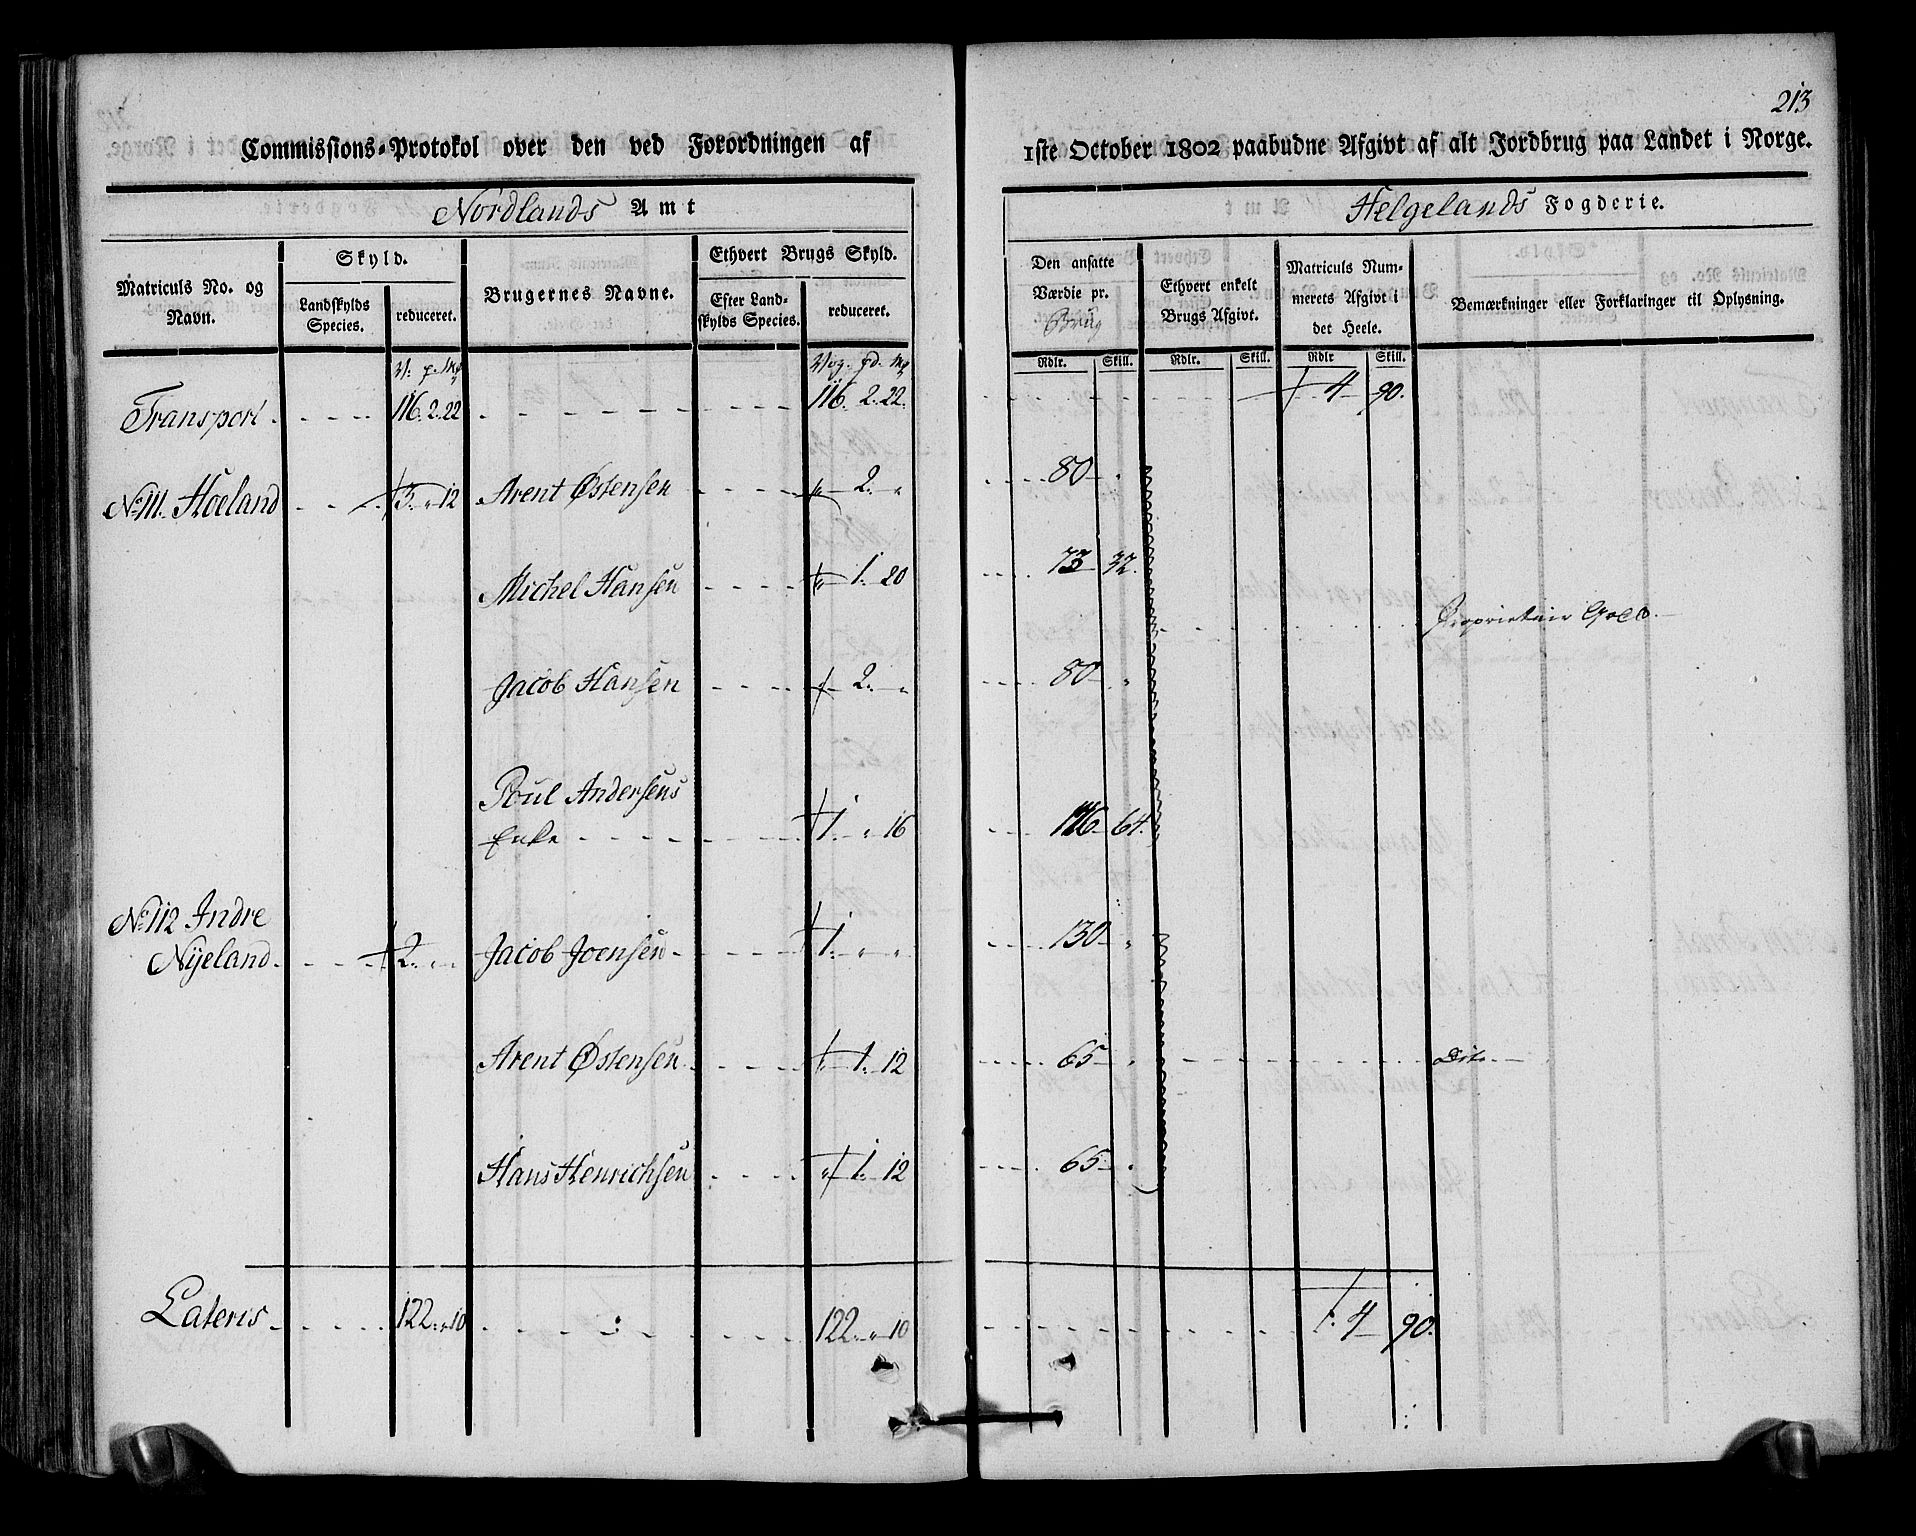 213
Commissions-Protokol over den ved Forordningen af 1ste October 1802 paabudne Afgivt af alt Jordbrug paa Landet i Norge.
Nordlands Amt Helgelands Fogderie.
Matriculs No. og Navn.
Skyld.
Landskylds Species.
reduceret.
Brugernes Navne.
Ethvert Brugs Skyld.
Efter Landskylds Species.
reduceret.
Den ansatte Værdie pr. Brug
Ethvert enkelt Brugs Afgivt.
Matriculs Nummerets Afgivt i det Heele.
Bemærkninger eller Forklaringer til Oplysning.
V: p. Mk Vog. pd. Mk Rdlr. Skill. Rdlr. Skill. Rdlr Skill.
Transport 116. 2. 22 116. 2. 22. 4 90.
No 111. Hoeland 3. " 12 Arent Østensen " 2. " 80 "
Michel Hansen " 1. 20 73 32.
Proprietair Coldevin
Jacob Hansen 2. " 80 "
Poul Andersens
Enke 1. " 16 116 64.
No 112 Indre
Nyeland 2. " " Jacob Joensen 1. " " 130 "
Arent Østensen " 1. 12 65 " Dito
Hans Henrichsen " 1. 12 65 "
Lateris 122. " 10 122. " 10 4 90.